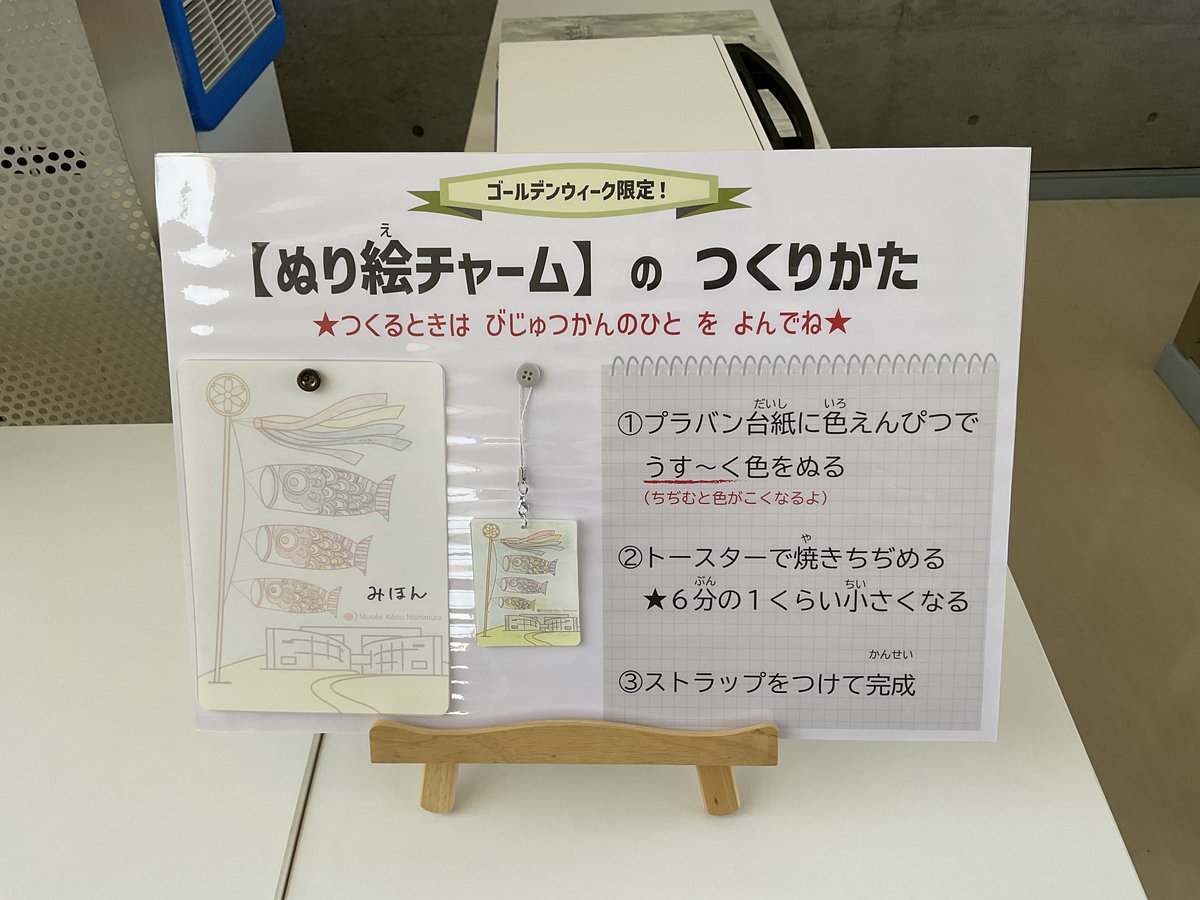 ゴールデンウィーク限定！
え
【ぬり絵チャーム】 の つくりかた
★つくるときは びじゅつかんのひと を よんでね★
だいし いろ
①プラバン台紙に色えんぴつで
うす～く色をぬる
（ちぢむと色がこくなるよ）
や
②トースターで焼きちぢめる
ぶん ちい
★６分の１くらい小さくなる
かんせい
③ストラップをつけて完成
みほん
Musée Kéou Nishimura